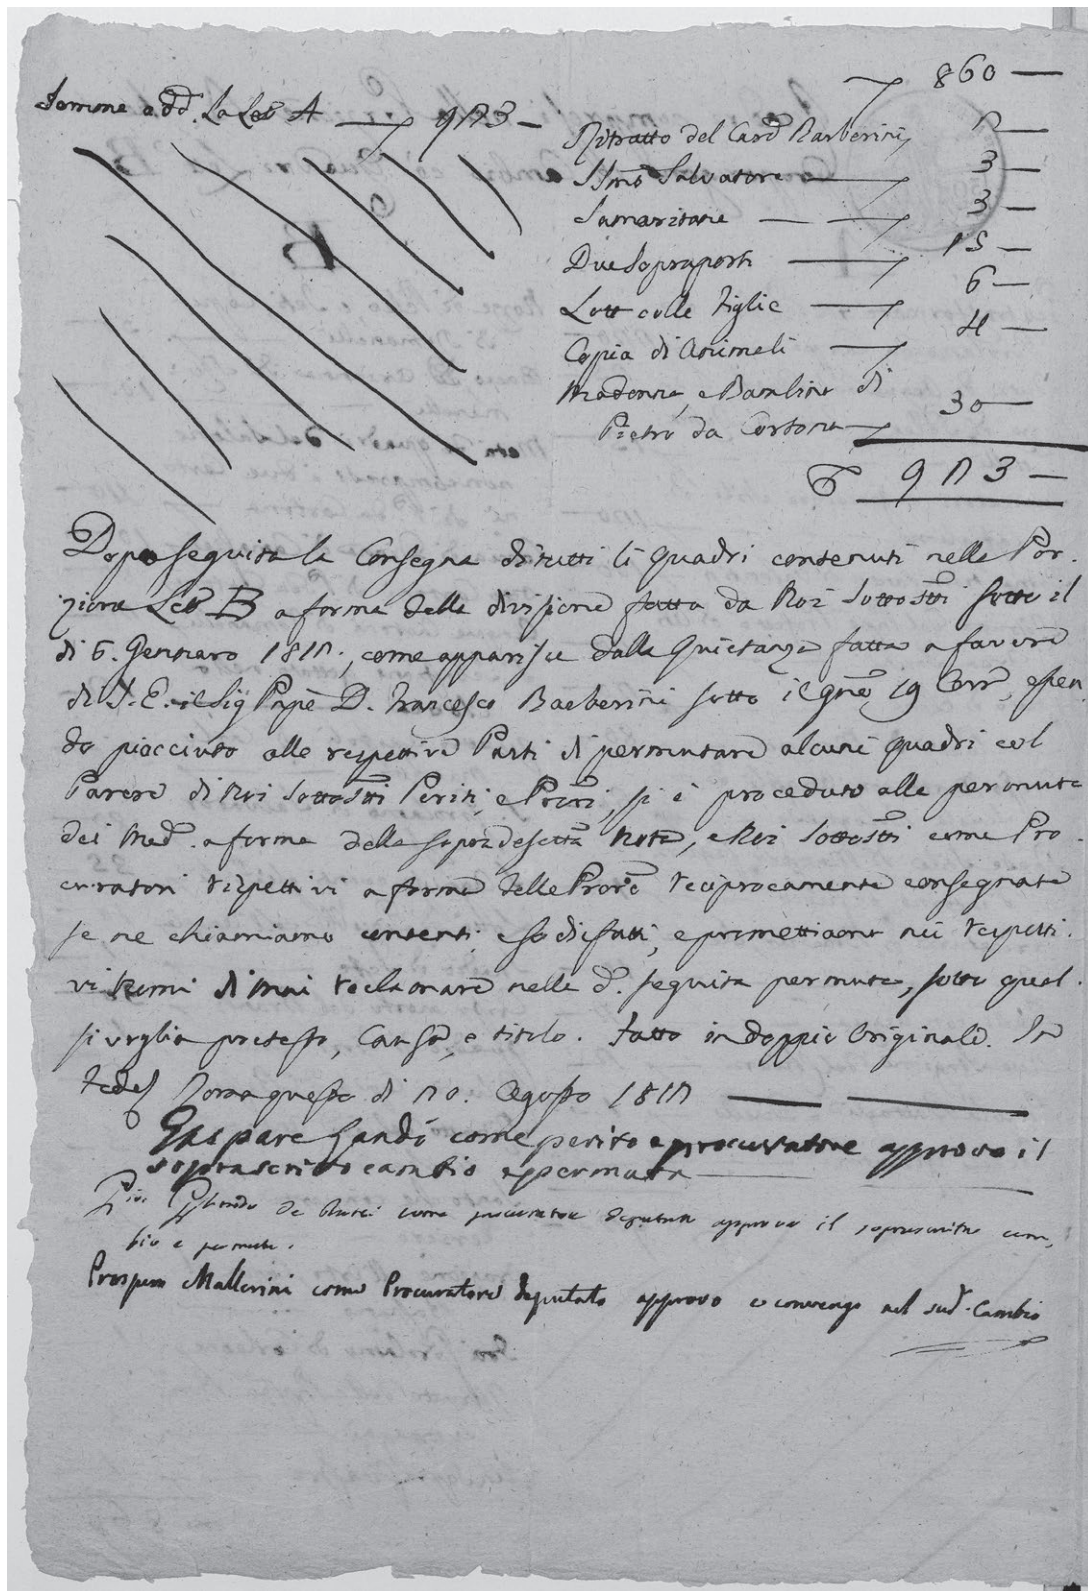 Somma add. La Lra A — 923 —
860 —
Ritratto del Card Barberini 2 —
SSmo Salvatore — 3 —
Samaritana — 3 —
Due Sopraporti — 15 —
Lott colle Figlie — 6 —
Copia di Animali — 4 —
Madonna, e Bambino di
Pietro da Cortona — 30 —
923 —
Dopo seguita la Consegna di tutti li quadri contenuti nella Por-
zione Lra B a forma della divisione fatta da Noi Sottostti sotto il
di 6. Gennaro 1812., come apparisce dalla Quietanza fatta a favore
di S. E. il Sig Pnpe D. Francesco Barberini sotto il gno 19 Corr, essen
do piacciuto alle respettive Parti di permutare alcuni quadri col
Parere di Noi Sottostti Periti, e Prori, si è proceduto alla permuta
dei Med. a forma della sopradescta Nota, e Noi Sottostti come Pro-
curatori rispettivi a forma delle Prore reciprocamente consegnate
se ne chiamiamo contenti, e sodisfatti, e promettiamo nei respetti-
vi Nomi di mai reclamare nella d. seguita permuta, sotto qual-
sivoglia pretesto, Causa, e titolo. Fatto in doppio Originale. In
fede Roma questo di 20. Agosto 1812 — —
Gaspare Landi come perito e procuratore approvo il
soprascritto cambio e permuta —
come procuratore deputato approvo il soprascritto cam,
bio e permuta.
Prospero Mallerini come Procuratore deputato approvo e convengo nel sud. Cambio